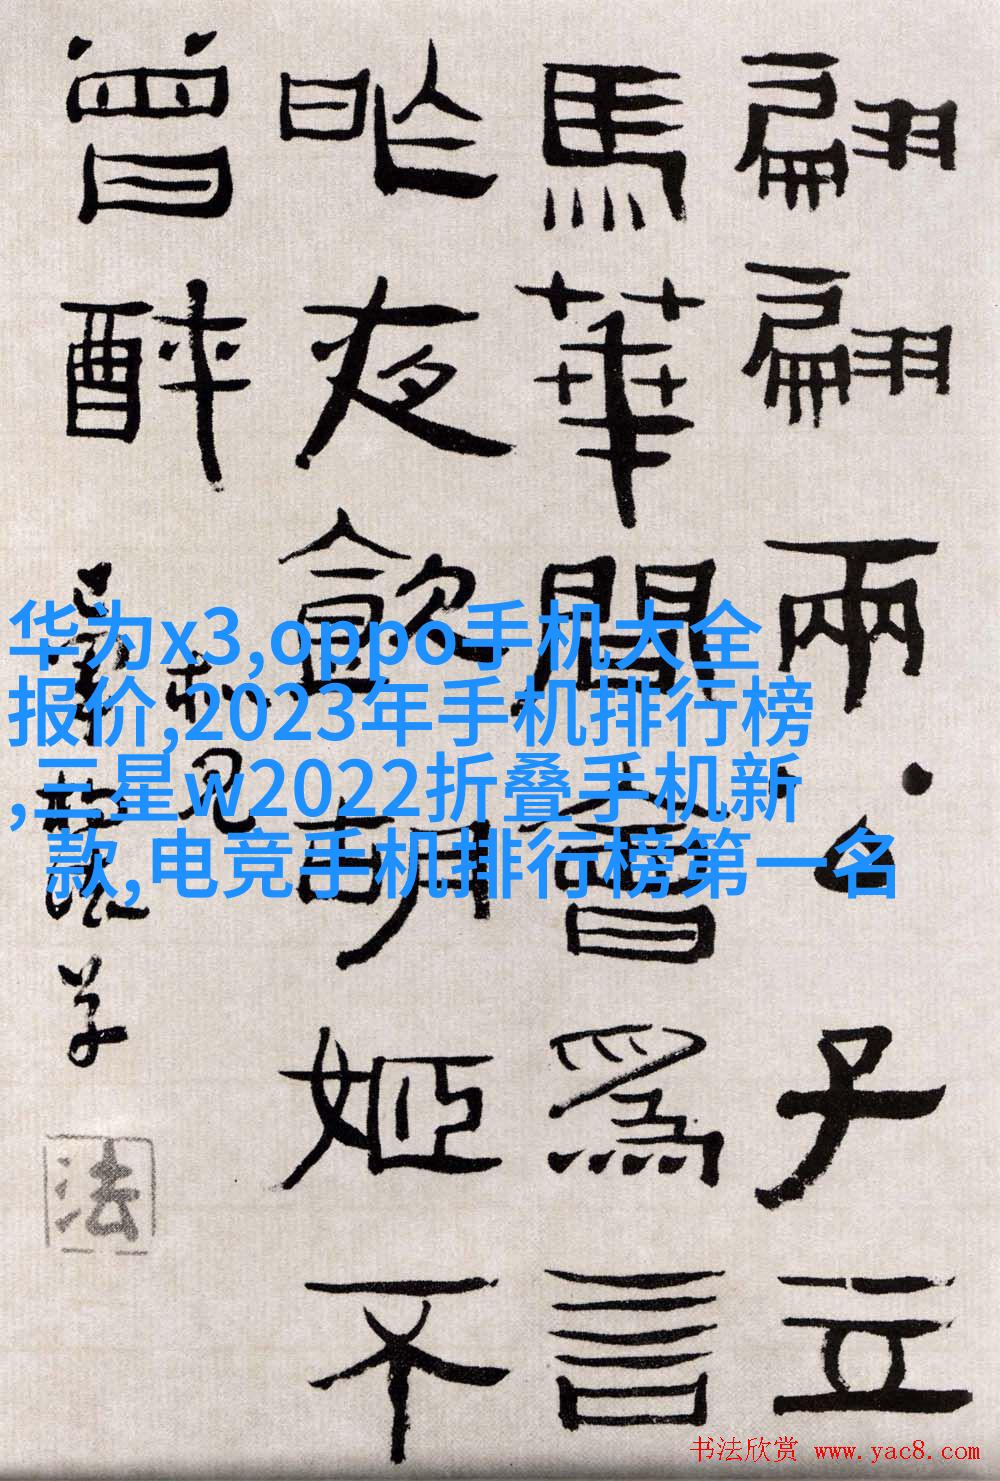 翩翩兩公子立
馬華間會爲言
昨夜飲胡姬不
曾醉
法
华为x3,oppo手机大全
报价,2023年手机排行榜
,三星w2022折叠手机新
款,电竞手机排行榜第一名
书法欣赏 www.yac8.com